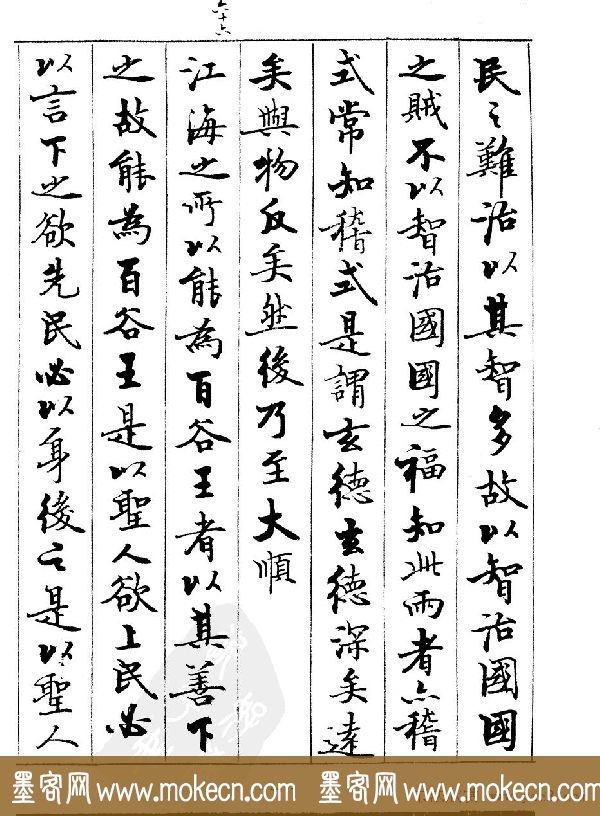 六十六
民之難治以其智多故以智治國國
之賊不以智治國國之福知此兩者亦稽
式常知稽式是謂玄德玄德深矣遠
矣與物反矣然後乃至大順
江海之所以能為百谷王者以其善下
之故能為百谷王是以聖人欲上民必
以言下之欲先民必以身後之是以聖人
墨客网 www.mokecn.com 墨客网 www.mokecn.com